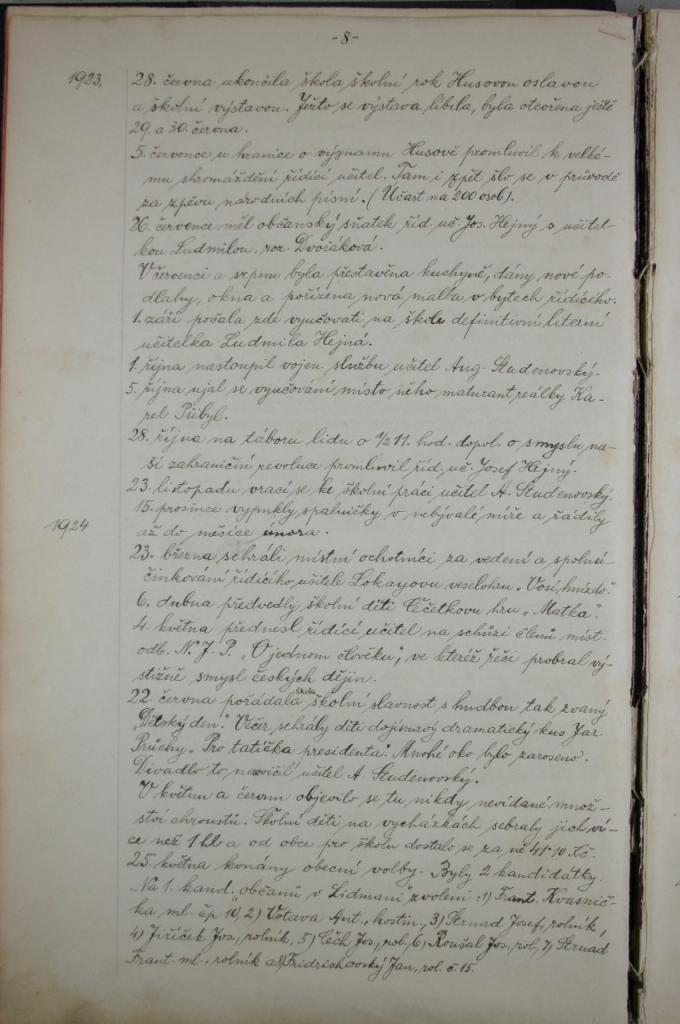 -8-
1923.
28. června ukončila škola školní rok Husovou oslavou
a školní výstavou. Ježto se výstava líbila, byla otevřena ještě
29. a 30. června.
5. července u hranice o významu Husově promluvil k velké-
mu shromáždění řídící učitel. Tam i zpět šlo se v průvodě
za zpěvu národních písní. (Účast na 200 osob).
26. července měl občanský sňatek říd. uč. Jos. Hejný s učitel-
kou Ludmilou, roz. Dvořákovou.
V červenci a srpnu byla přestavěna kuchyně, dány nové po-
dlahy, okna a pořízena nová malba v bytech řídícího.
1. září počala zde vyučovati na škole definitivní literní
učitelka Ludmila Hejná.
1. října nastoupil vojen. službu učitel Aug. Studenovský.
5. října ujal se vyučování místo něho maturant reálky Ka-
rel Přibyl.
28. října na táboru lidu o 1/2 11. hod. dopol. o smyslu na-
ší zahraniční revoluce promluvil říd. uč. Josef Hejný.
23. listopadu vrací se ke školní práci učitel A. Studenovský.
15. prosince vypukly spalničky v nebývalé míře a řádily
až do měsíce února.
1924
23. března sehráli místní ochotníci za vedení a spolu-
činkování řídícího učitele Lokayovu veselohru „Vosí hnízdo".
6. dubna předvedly školní děti Čečetkovu hru „Matka".
4. května přednesl řídící učitel na schůzi členů míst.
odb. N. J. P. „O jednom člověku", ve kteréž řeči probral vý-
stižně smysl českých dějin.
22. června pořádala škola školní slavnost s hudbou tak zvaný
„Dětský den." Večer sehrály děti dojímavý dramatický kus Jar.
Průchy „Pro tatíčka presidenta". Mnohé oko bylo zaroseno.
Divadlo to nacvičil učitel A. Studenovský.
V květnu a červnu objevilo se tu nikdy nevídané množ-
ství chroustů. Školní děti na vycházkách sebraly jich ví-
ce než 1 hl a od obce pro školu dostalo se za ně 41·10 Kč.
25. května konány obecní volby. Byly 2 kandidátky.
Na 1. kand. „občanů v Lidmani" zvoleni: 1) Frant. Kvasnič-
ka ml. čp. 10, 2) Votava Ant., hostin., 3) Strnad Josef, rolník,
4) Jiříček Jos., rolník, 5) Čech Jos., rol., 6) Roušal Jos., rol., 7) Strnad
Frant. ml., rolník a 8) Fridrichovský Jan, rol. č. 15.